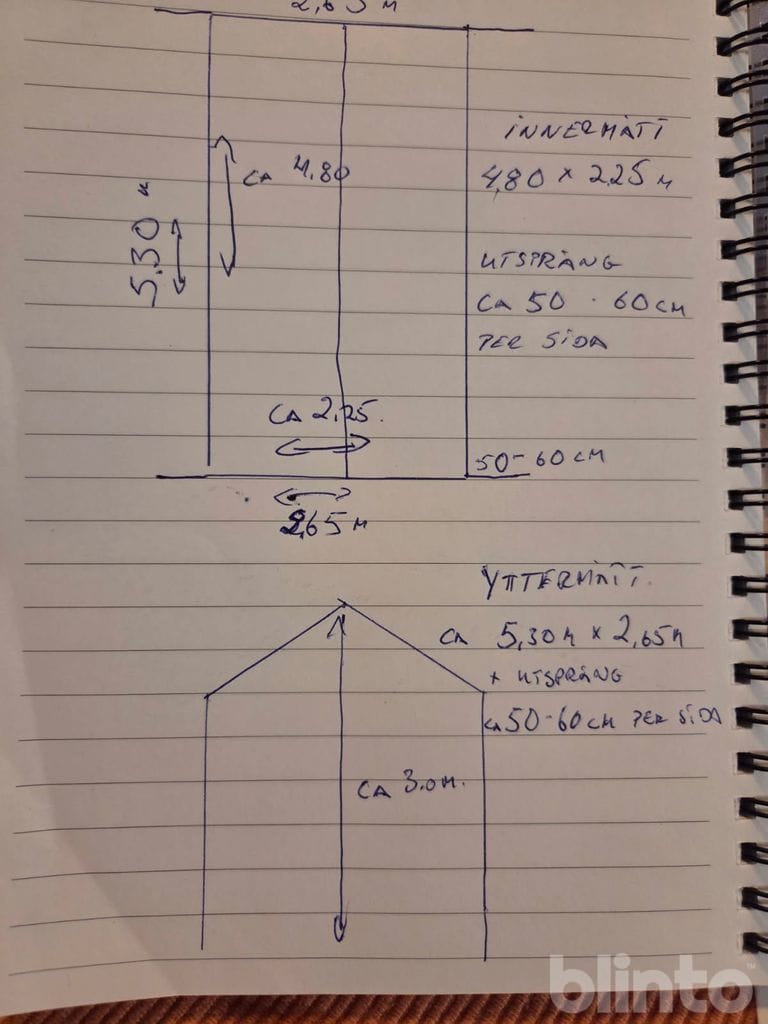 2,65 M
INNERMÅTT
CA 4.80
4,80 × 2,25 M
5.30 M
UTSPRÅNG
CA 50 - 60 CM
PER SIDA
CA 2,25.
50-60 CM
2,65 M
YTTERMÅTT.
CA 5,30 M × 2,65 M
+ UTSPRÅNG
CA 50-60 CM PER SIDA
CA 3.0 M.
blinto